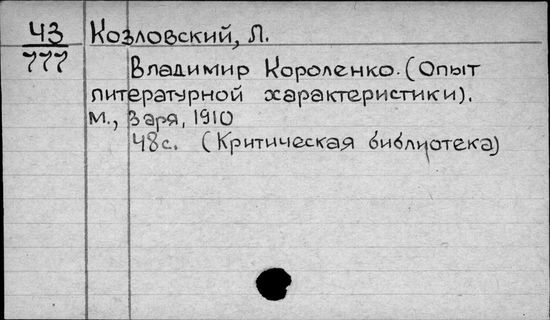 43 Козловский, Л.
777
Владимир Короленко. (Опыт
литературной характеристики).
М., Заря, 1910
48с. (Критическая библиотека)